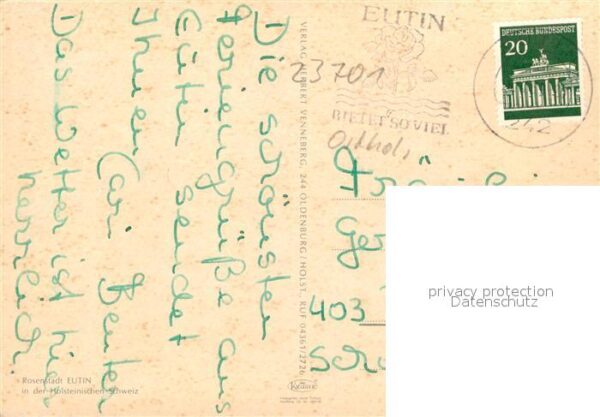 Die schönsten
Feriengrüße aus
Eutin sendet
Ihnen Cari
Das Wetter ist hier
herrlich.
Rosenstadt EUTIN
in der Holsteinischen Schweiz
VERLAG HERBERT VENNEBERG, 244 OLDENBURG/HOLST. RUF 04361/2726
Krüger
EUTIN
BIETET SO VIEL
23701
DEUTSCHE BUNDESPOST
20
242
403
privacy protection
Datenschutz